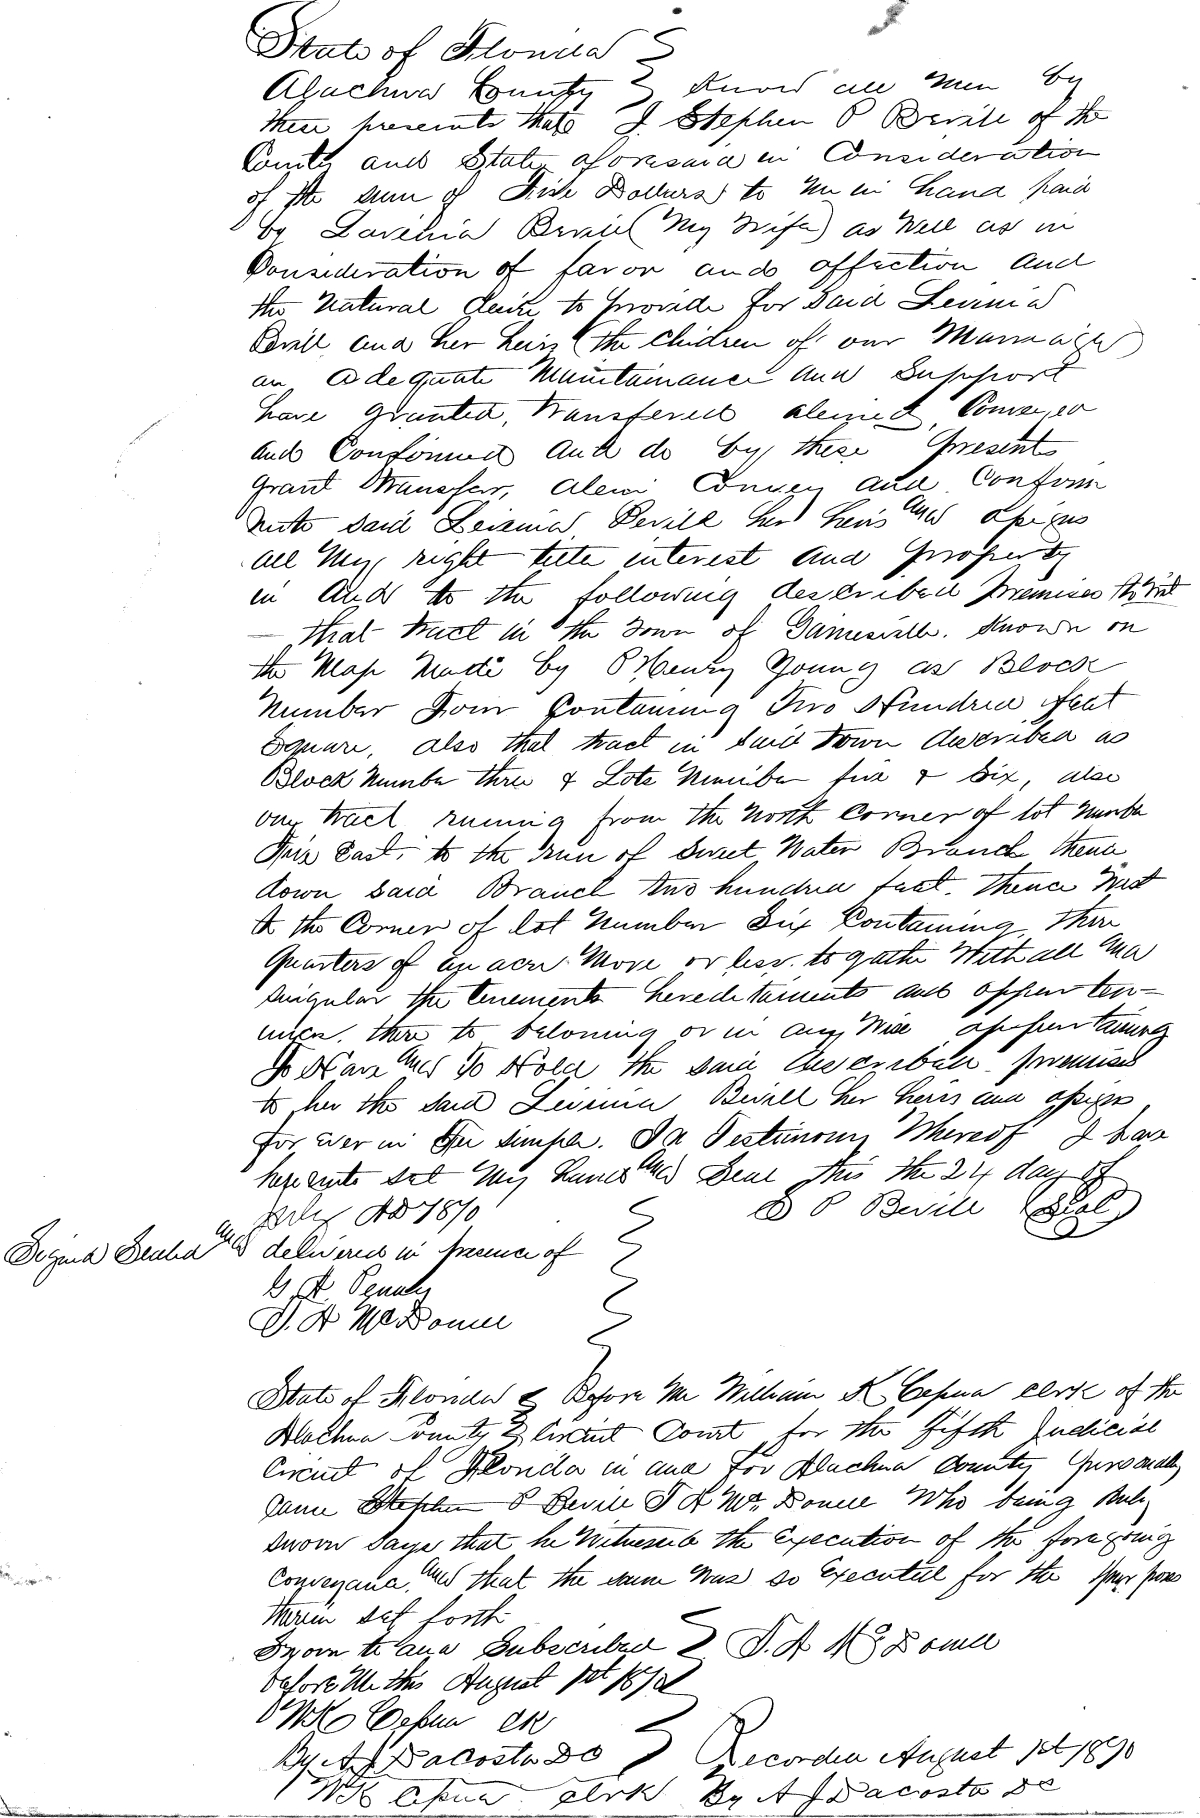 State of Florida
Alachua County Know all Men by
these presents that I Stephen P Bevill of the
County and State aforesaid in Consideration
of the sum of Five Dollars to me in hand paid
by Lavinia Bevill (My Wife) as Well as in
Consideration of favor and affection and
the Natural desire to provide for Said Levinia
Bevill and her heirs (the Children of our Marriage)
an adequate Maintainance and Support
have granted, transfered aliened, Conveyed
and Confirmed and do by these presents
grant transfer, alein Convey and Confirm
unto said Levinia Bevill her heirs and assigns
all My right title interest and property
in and to the following described premises to wit
— that tract in the Town of Gainesville. Known on
the Map Made by P Henry Young as Block
Number Four Containing Two Hundred feet
Square, also that tract in Said Town described as
Block Number three & Lots Number five & Six, also
one tract running from the North Corner of lot Number
Five East, to the run of Sweet Water Branch thence
down said Branch two hundred feet. thence West
to the Corner of lot Number Six Containing three
quarters of an acre More or less. togather With all and
singular the tenements hereditaments and appurten-
ances. there to beloning or in any Wise appurtaining
To Have and To Hold the said described premises
to her the said Levinia Bevill her heirs and assigns
for ever in fee simple. In Testimony Whereof I have
hereunto set My hand and Seal this the 24 day of
July AD 1870 S P Bevill (Seal)
Signed Sealed and delivered in presence of
G A Penny
T. A McDonell
State of Florida Before Me William K Cessna clerk of the
Alachua County Circuit Court for the Fifth Judicial
Circuit of Florida in and for Alachua County personally
came Stephen P Bevill T A Mc Donell Who being duly
sworn Says that he Witnessed the execution of the foregoing
Conveyance, and that the same Was so executed for the purposes
therein set forth
Sworn to and Subscribed T. A Mc Donell
before Me this August 1st 1870
WK Cessna Clk
By A J Dacosta DC Recorded August 1st 1870
WK Cessna Clerk By A J Dacosta DC